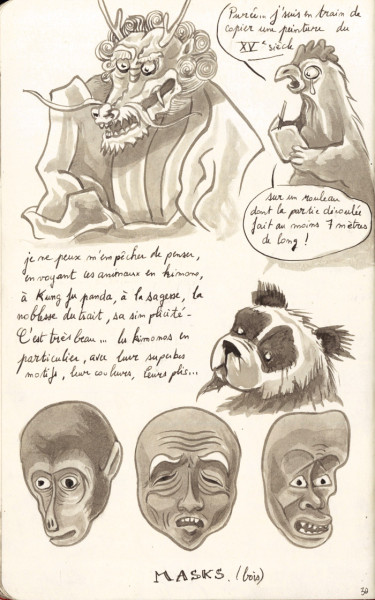 Purée... j'suis en train de
copier une peinture du
XVe siècle
sur un rouleau
dont la partie déroulée
fait au moins 7 mètres
de long !
je ne peux m'empêcher de penser,
en voyant les animaux en kimono,
à Kung fu panda, à la sagesse, la
noblesse du trait, sa simplicité -
C'est très beau... les kimonos en
particulier, avec leurs superbes
motifs, leurs couleurs, leurs plis...
MASKS. (bois)
30